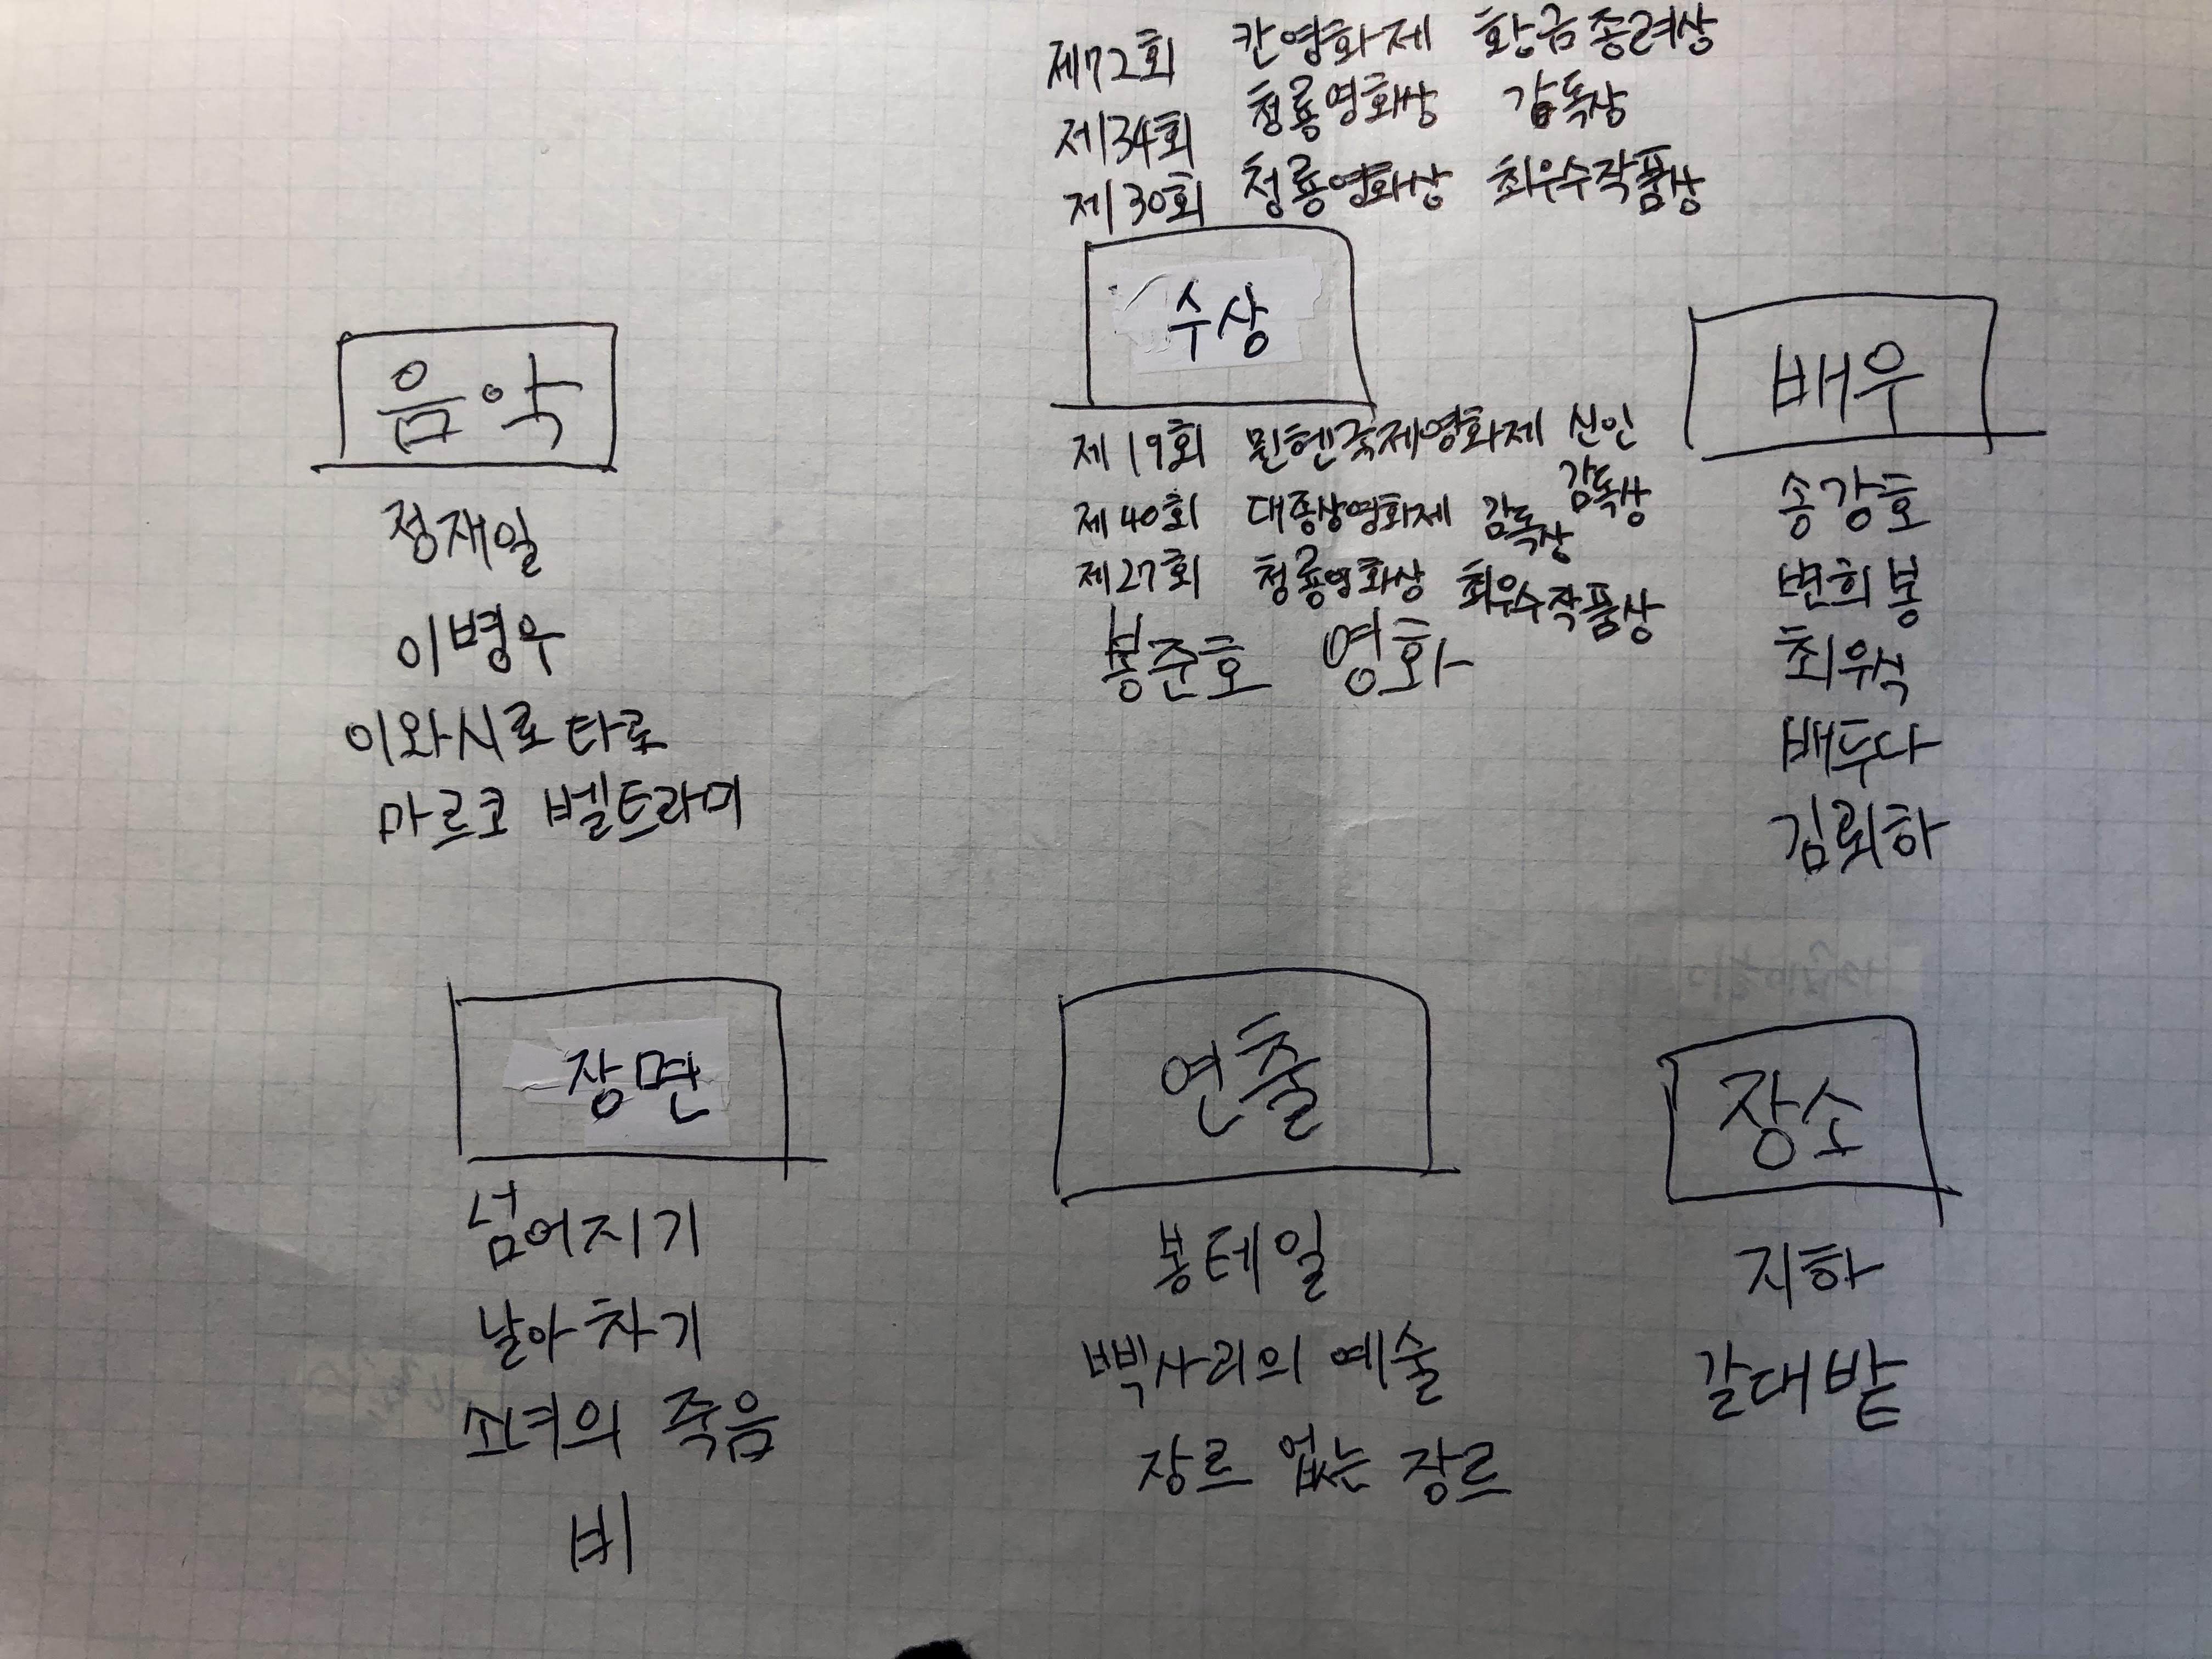 제72회 칸영화제 황금종려상
제34회 청룡영화상 감독상
제30회 청룡영화상 최우수작품상
수상
제19회 뮌헨국제영화제 신인
감독상
제40회 대종상영화제 감독상
제27회 청룡영화상 최우수작품상
봉준호 영화
음악
정재일
이병우
이와시로 타로
마르코 벨트라미
배우
송강호
변희봉
최우식
배두나
김뢰하
장면
넘어지기
날아차기
소녀의 죽음
비
연출
봉테일
삑사리의 예술
장르 없는 장르
장소
지하
갈대밭